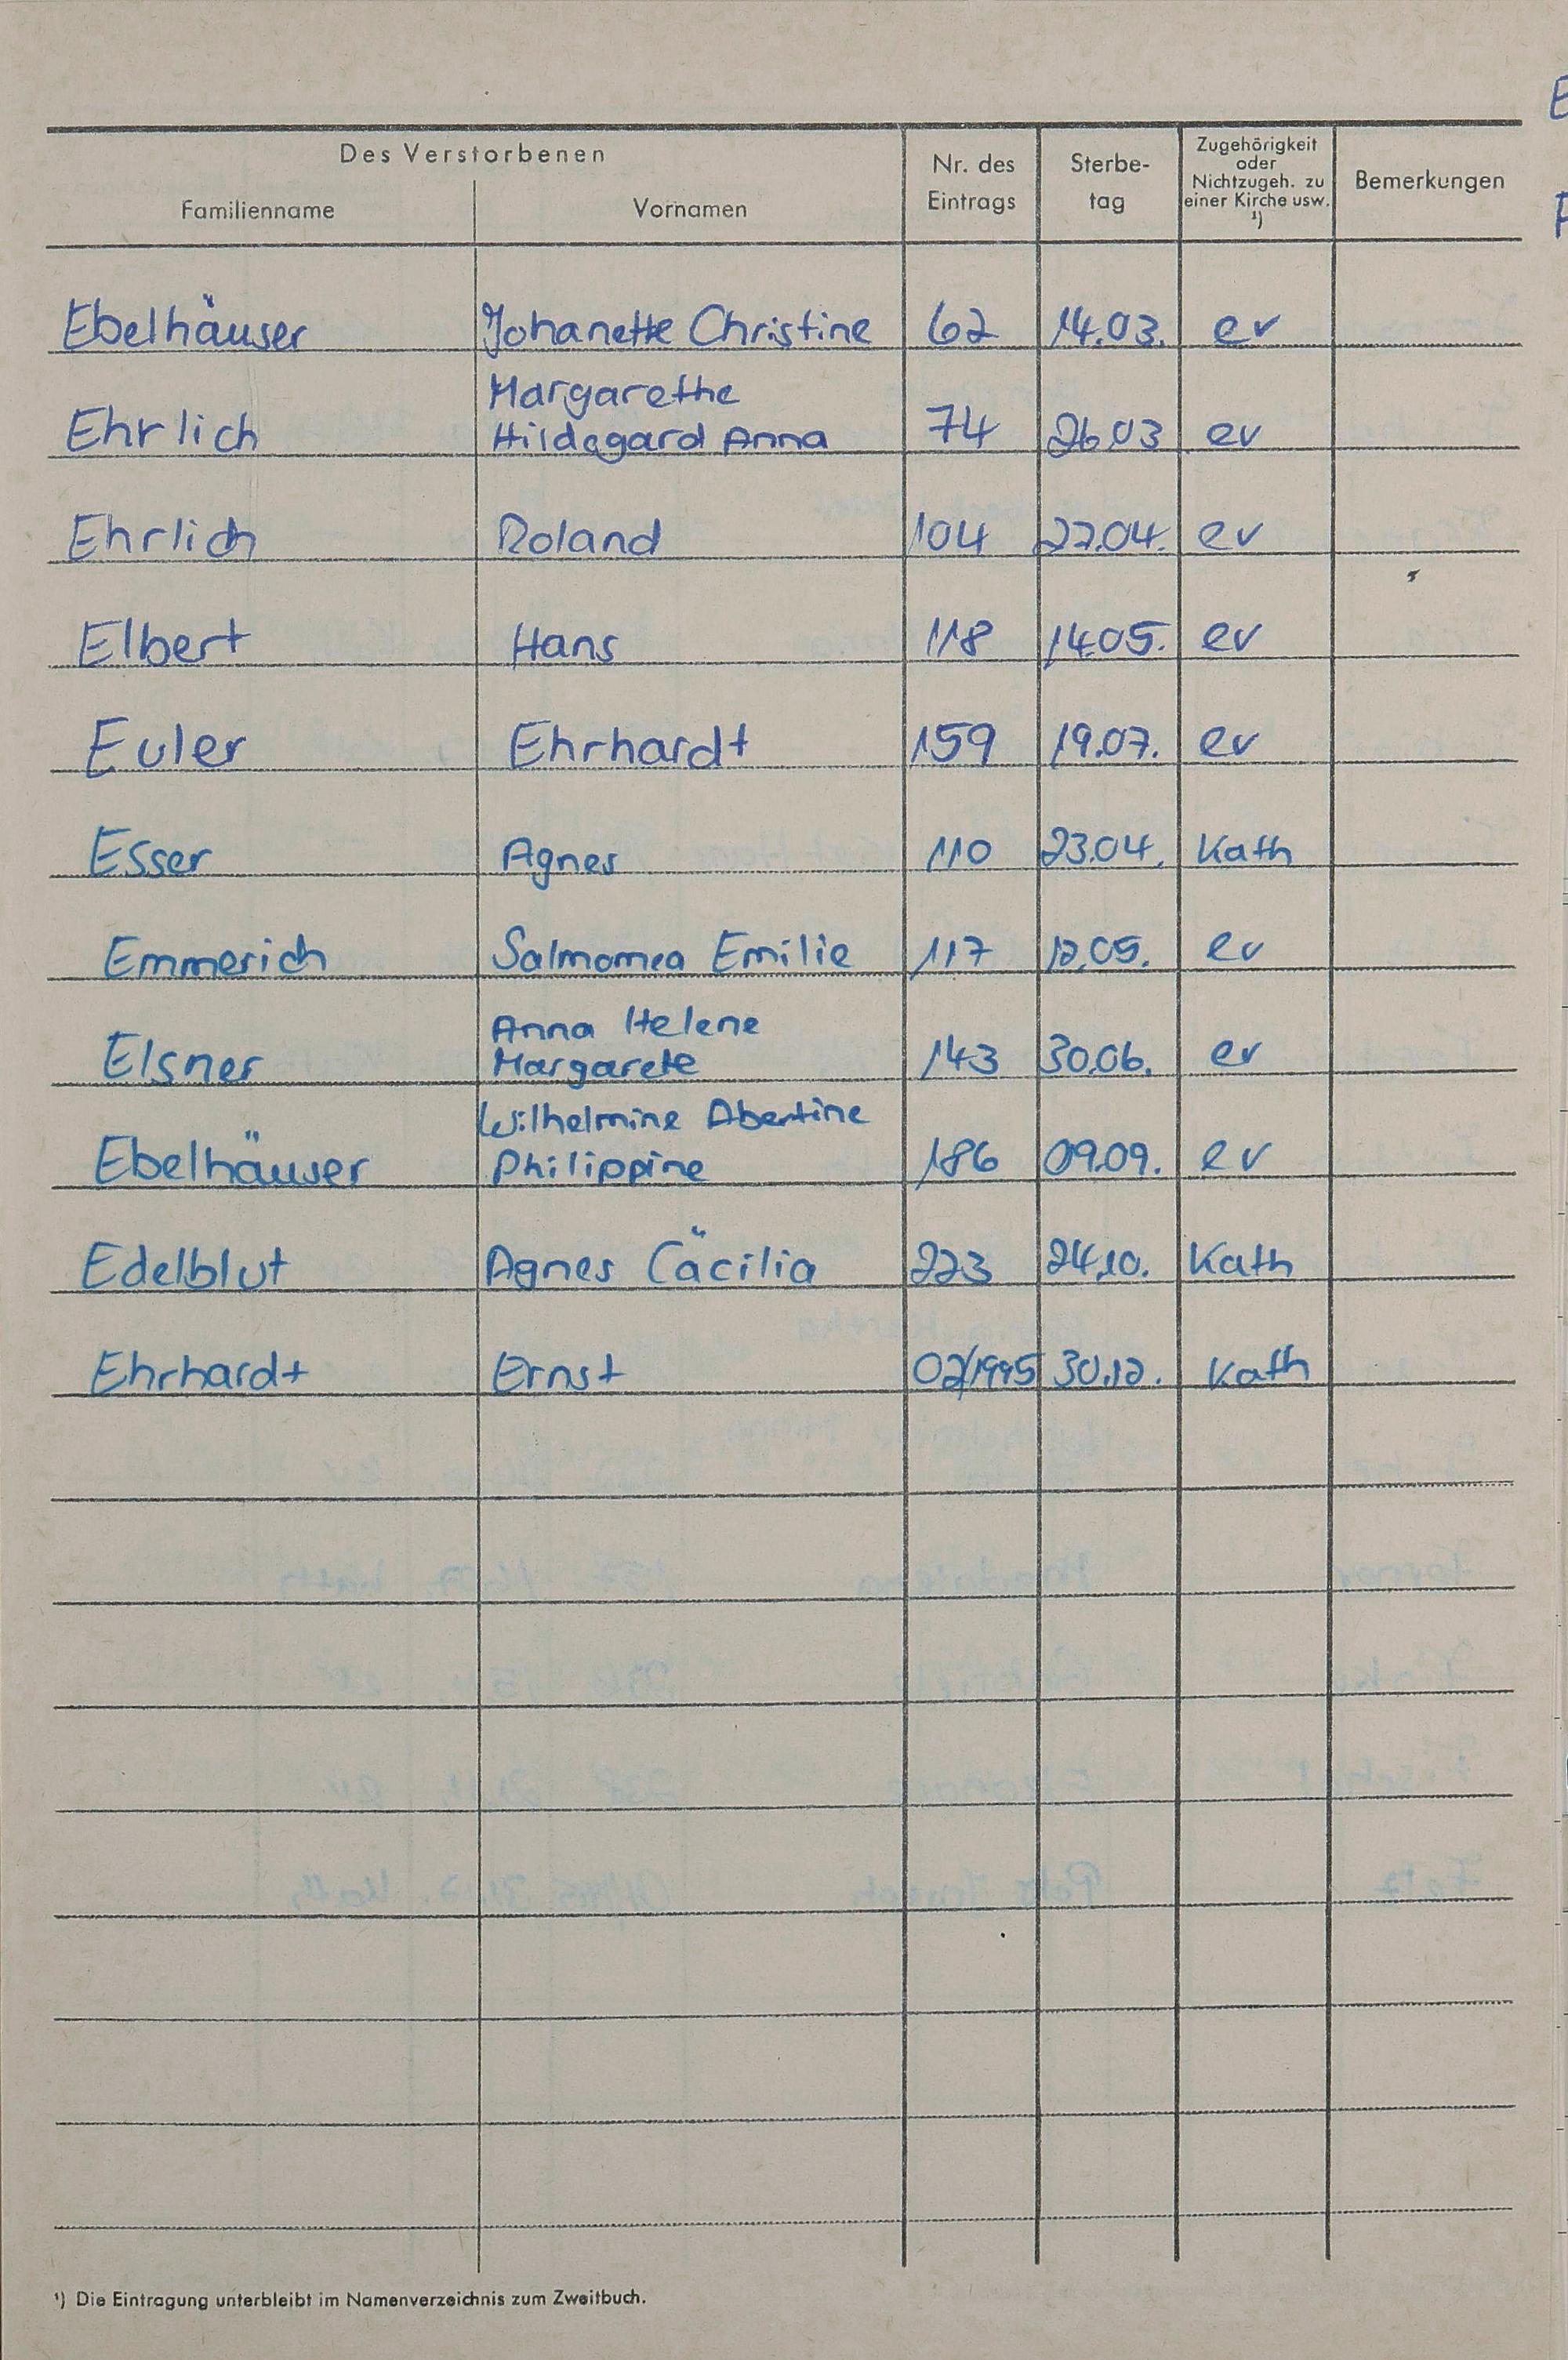 Des Verstorbenen
Familienname Vornamen Nr. des Eintrags Sterbe-tag Zugehörigkeit oder Nichtzugeh. zu einer Kirche usw. ¹) Bemerkungen
Ebelhäuser Johanette Christine 62 14.03. ev
Margarethe
Ehrlich Hildegard Anna 74 26.03 ev
Ehrlich Roland 104 27.04. ev
Elbert Hans 118 14.05. ev
Euler Ehrhardt 159 19.07. ev
Esser Agnes 110 23.04. Kath
Emmerich Salmomea Emilie 117 12.05. ev
Anna Helene
Elsner Margarete 143 30.06. ev
Wilhelmine Abertine
Ebelhäuser Philippine 186 09.09. ev
Edelblut Agnes Cäcilia 223 24.10. Kath
Ehrhardt Ernst 02/1995 30.12. Kath
¹) Die Eintragung unterbleibt im Namenverzeichnis zum Zweitbuch.